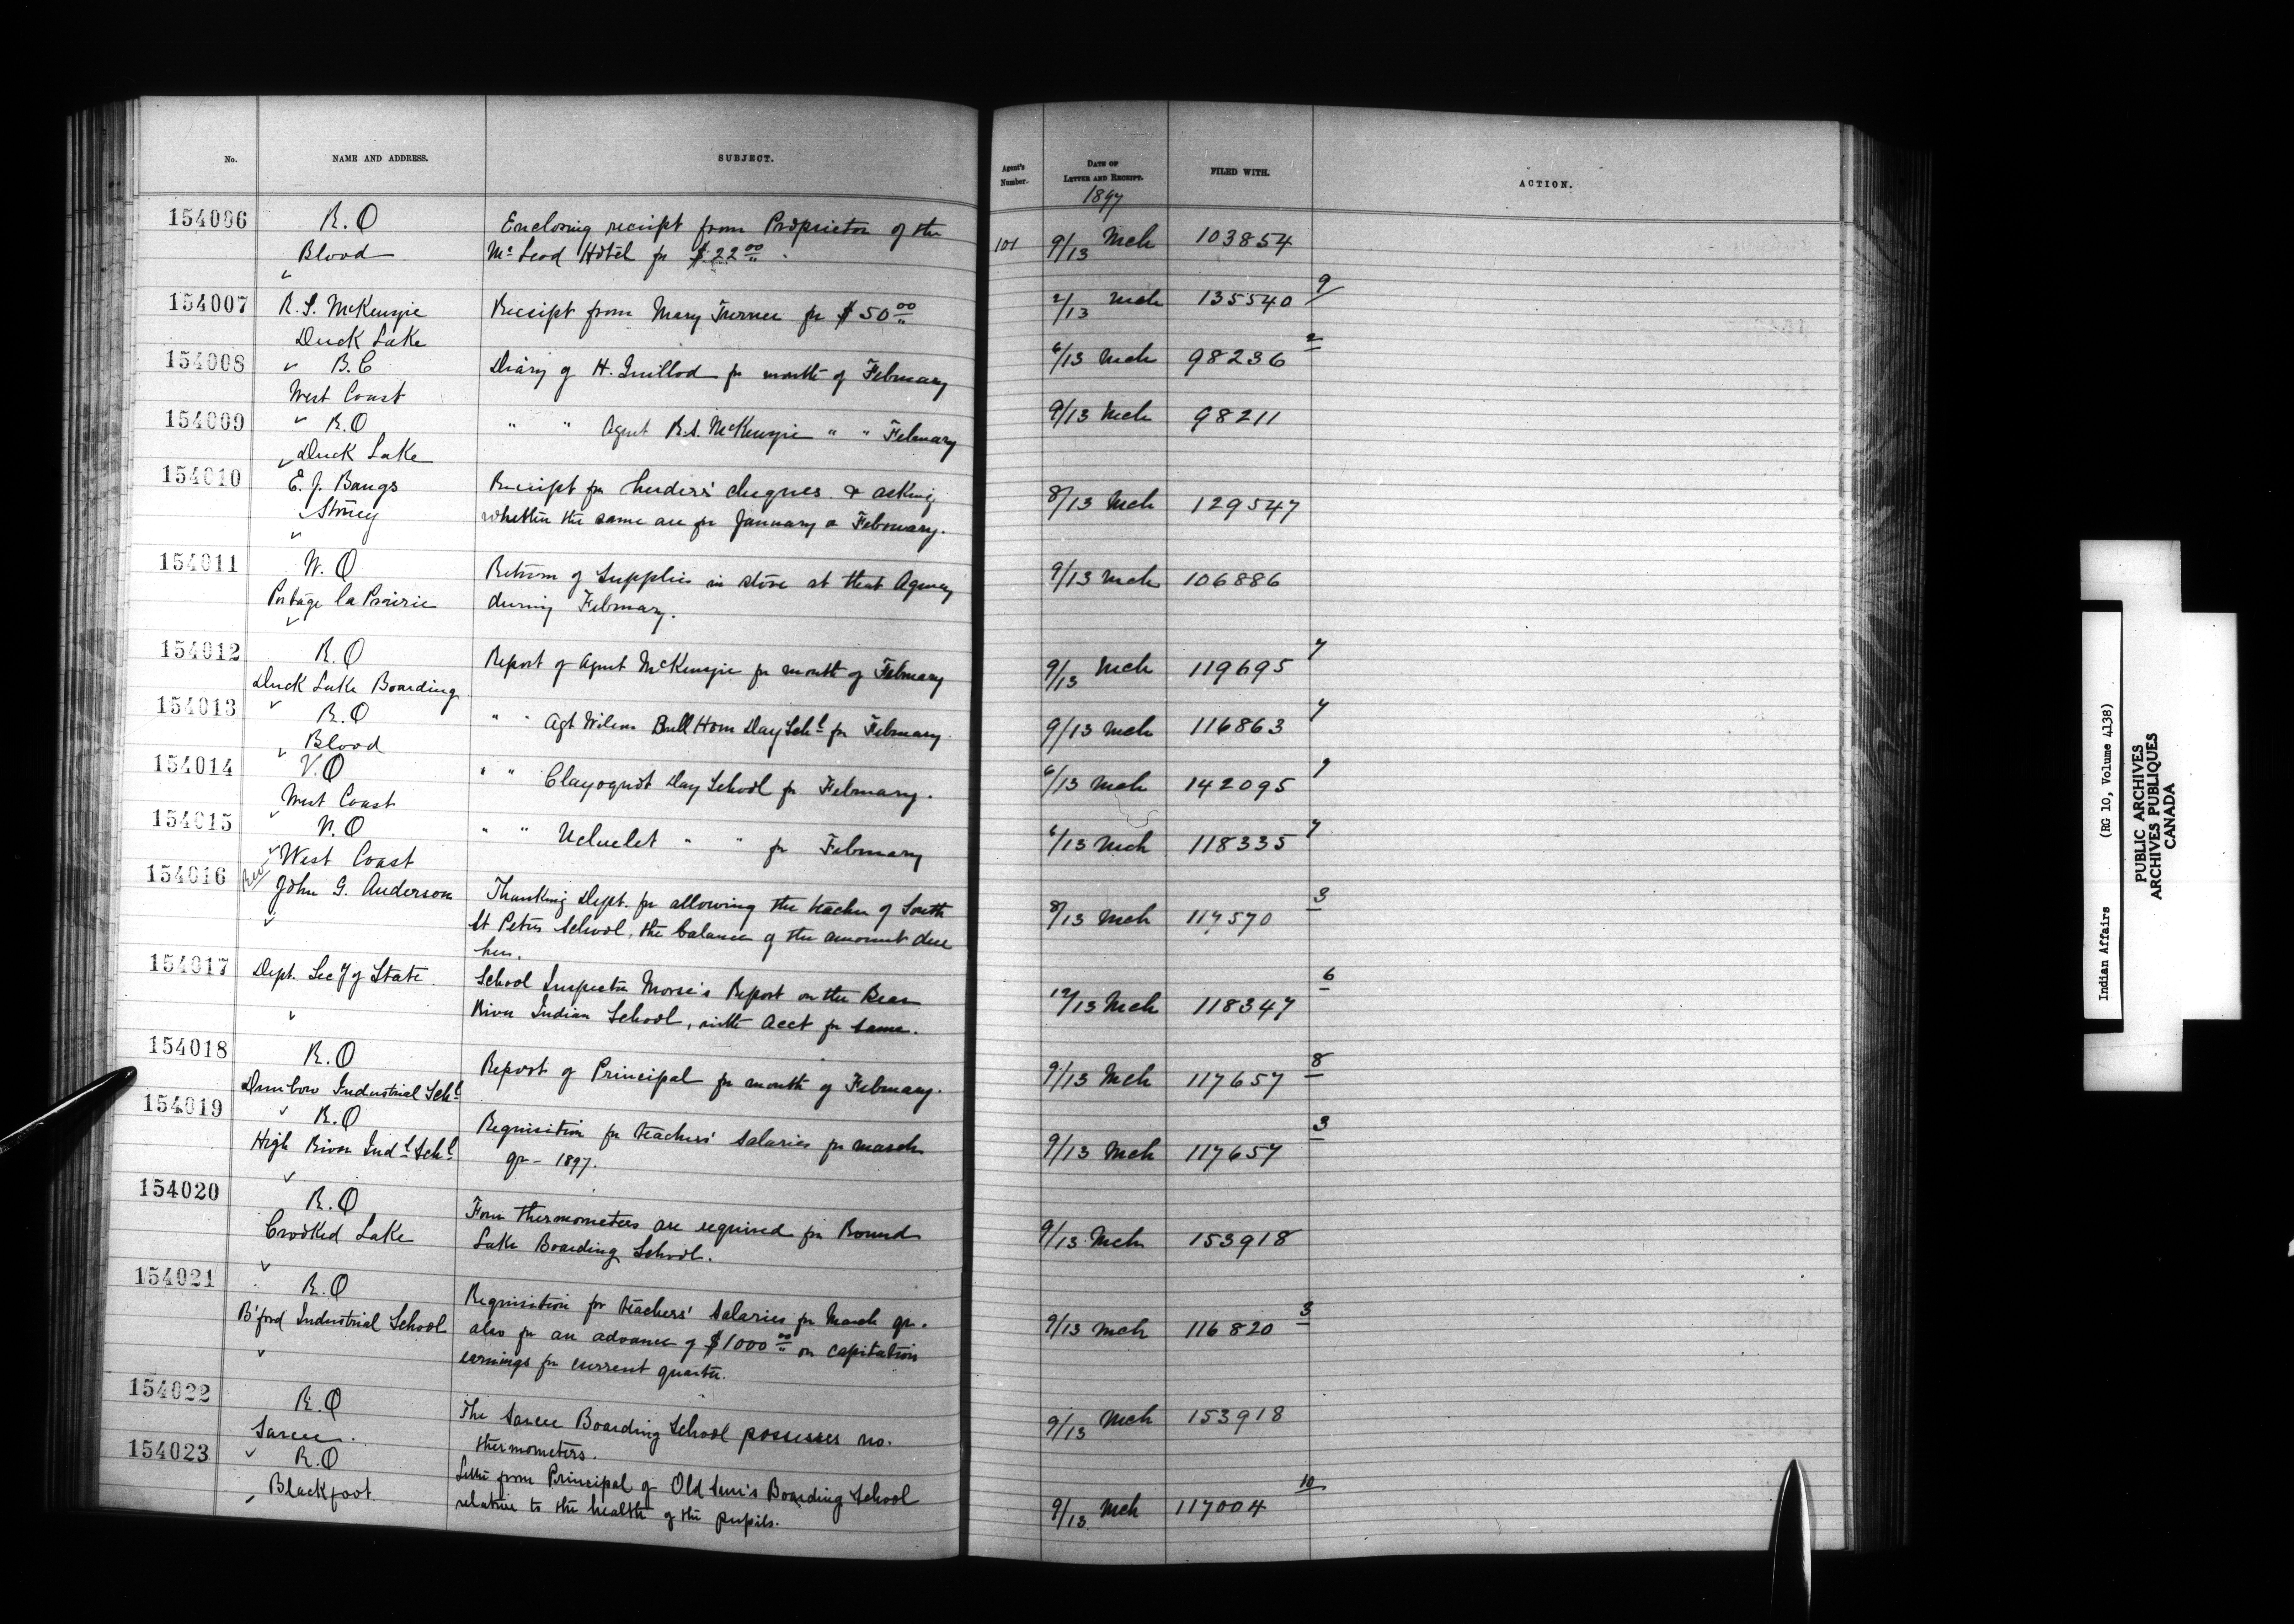 No. NAME AND ADDRESS. SUBJECT. Agent's Number. DATE OF LETTER AND RECEIPT. FILED WITH. ACTION.
1897
154006 R.O Enclosing receipt from Proprietor of the
Blood McLeod Hotel for $22.00 101 9/13 Mch 103854
154007 R. S. McKenzie Receipt from Mary Turner for $50.00 2/13 Mch 135540 9
Duck Lake
154008 B.C Diary of H. Guillod for month of February 6/13 Mch 98236 2
West Coast
154009 R.O " " Agent R.S. McKenzie " " February 9/13 Mch 98211
Duck Lake
154010 E. J. Bangs Receipt for herders' cheques & asking 8/13 Mch 129547
Stoney whether the same are for January or February.
154011 W. O Return of Supplies in store at that Agency 9/13 Mch 106886
Portage la Prairie during February.
154012 R.O Report of Agent McKenzie for month of February 9/13 Mch 119695 7
Duck Lake Boarding
154013 R.O " " Agt Wilson Bull Horn Day Schl for February 9/13 Mch 116863 7
Blood
154014 V.O " " Clayoquot Day School for February. 6/13 Mch 142095 9
West Coast
154015 V.O " " Ucluelet " " for February 6/13 Mch 118335 7
West Coast
154016 Rev John G. Anderson Thanking Dept. for allowing the teacher of South
St Peters School, the balance of the amount due 8/13 Mch 117570 3
her.
154017 Dept. Secy of State School Inspector Morse's Report on the Bear
River Indian School, with Acct for same. 12/13 Mch 118347 6
154018 R.O Report of Principal for month of February. 9/13 Mch 117657 8
Dunbow Industrial Schl
154019 R.O Requisition for teachers' salaries for March 9/13 Mch 117657 3
High River Indl Schl qr - 1897.
154020 R.O Four thermometers are required for Round 9/13 Mch 153918
Crooked Lake Lake Boarding School.
154021 R.O Requisition for teachers' salaries for March qr.
B'ford Industrial School also for an advance of $1000.00 on capitation 9/13 Mch 116820 3
earnings for current quarter.
154022 R.O The Sarcee Boarding School possesses no 9/13 Mch 153918
Sarcee. thermometers.
154023 R.O Letter from Principal of Old Sun's Boarding School
Blackfoot relative to the health of the pupils. 9/13 Mch 117004 10
Indian Affairs (RG 10, Volume 4138)
PUBLIC ARCHIVES
ARCHIVES PUBLIQUES
CANADA